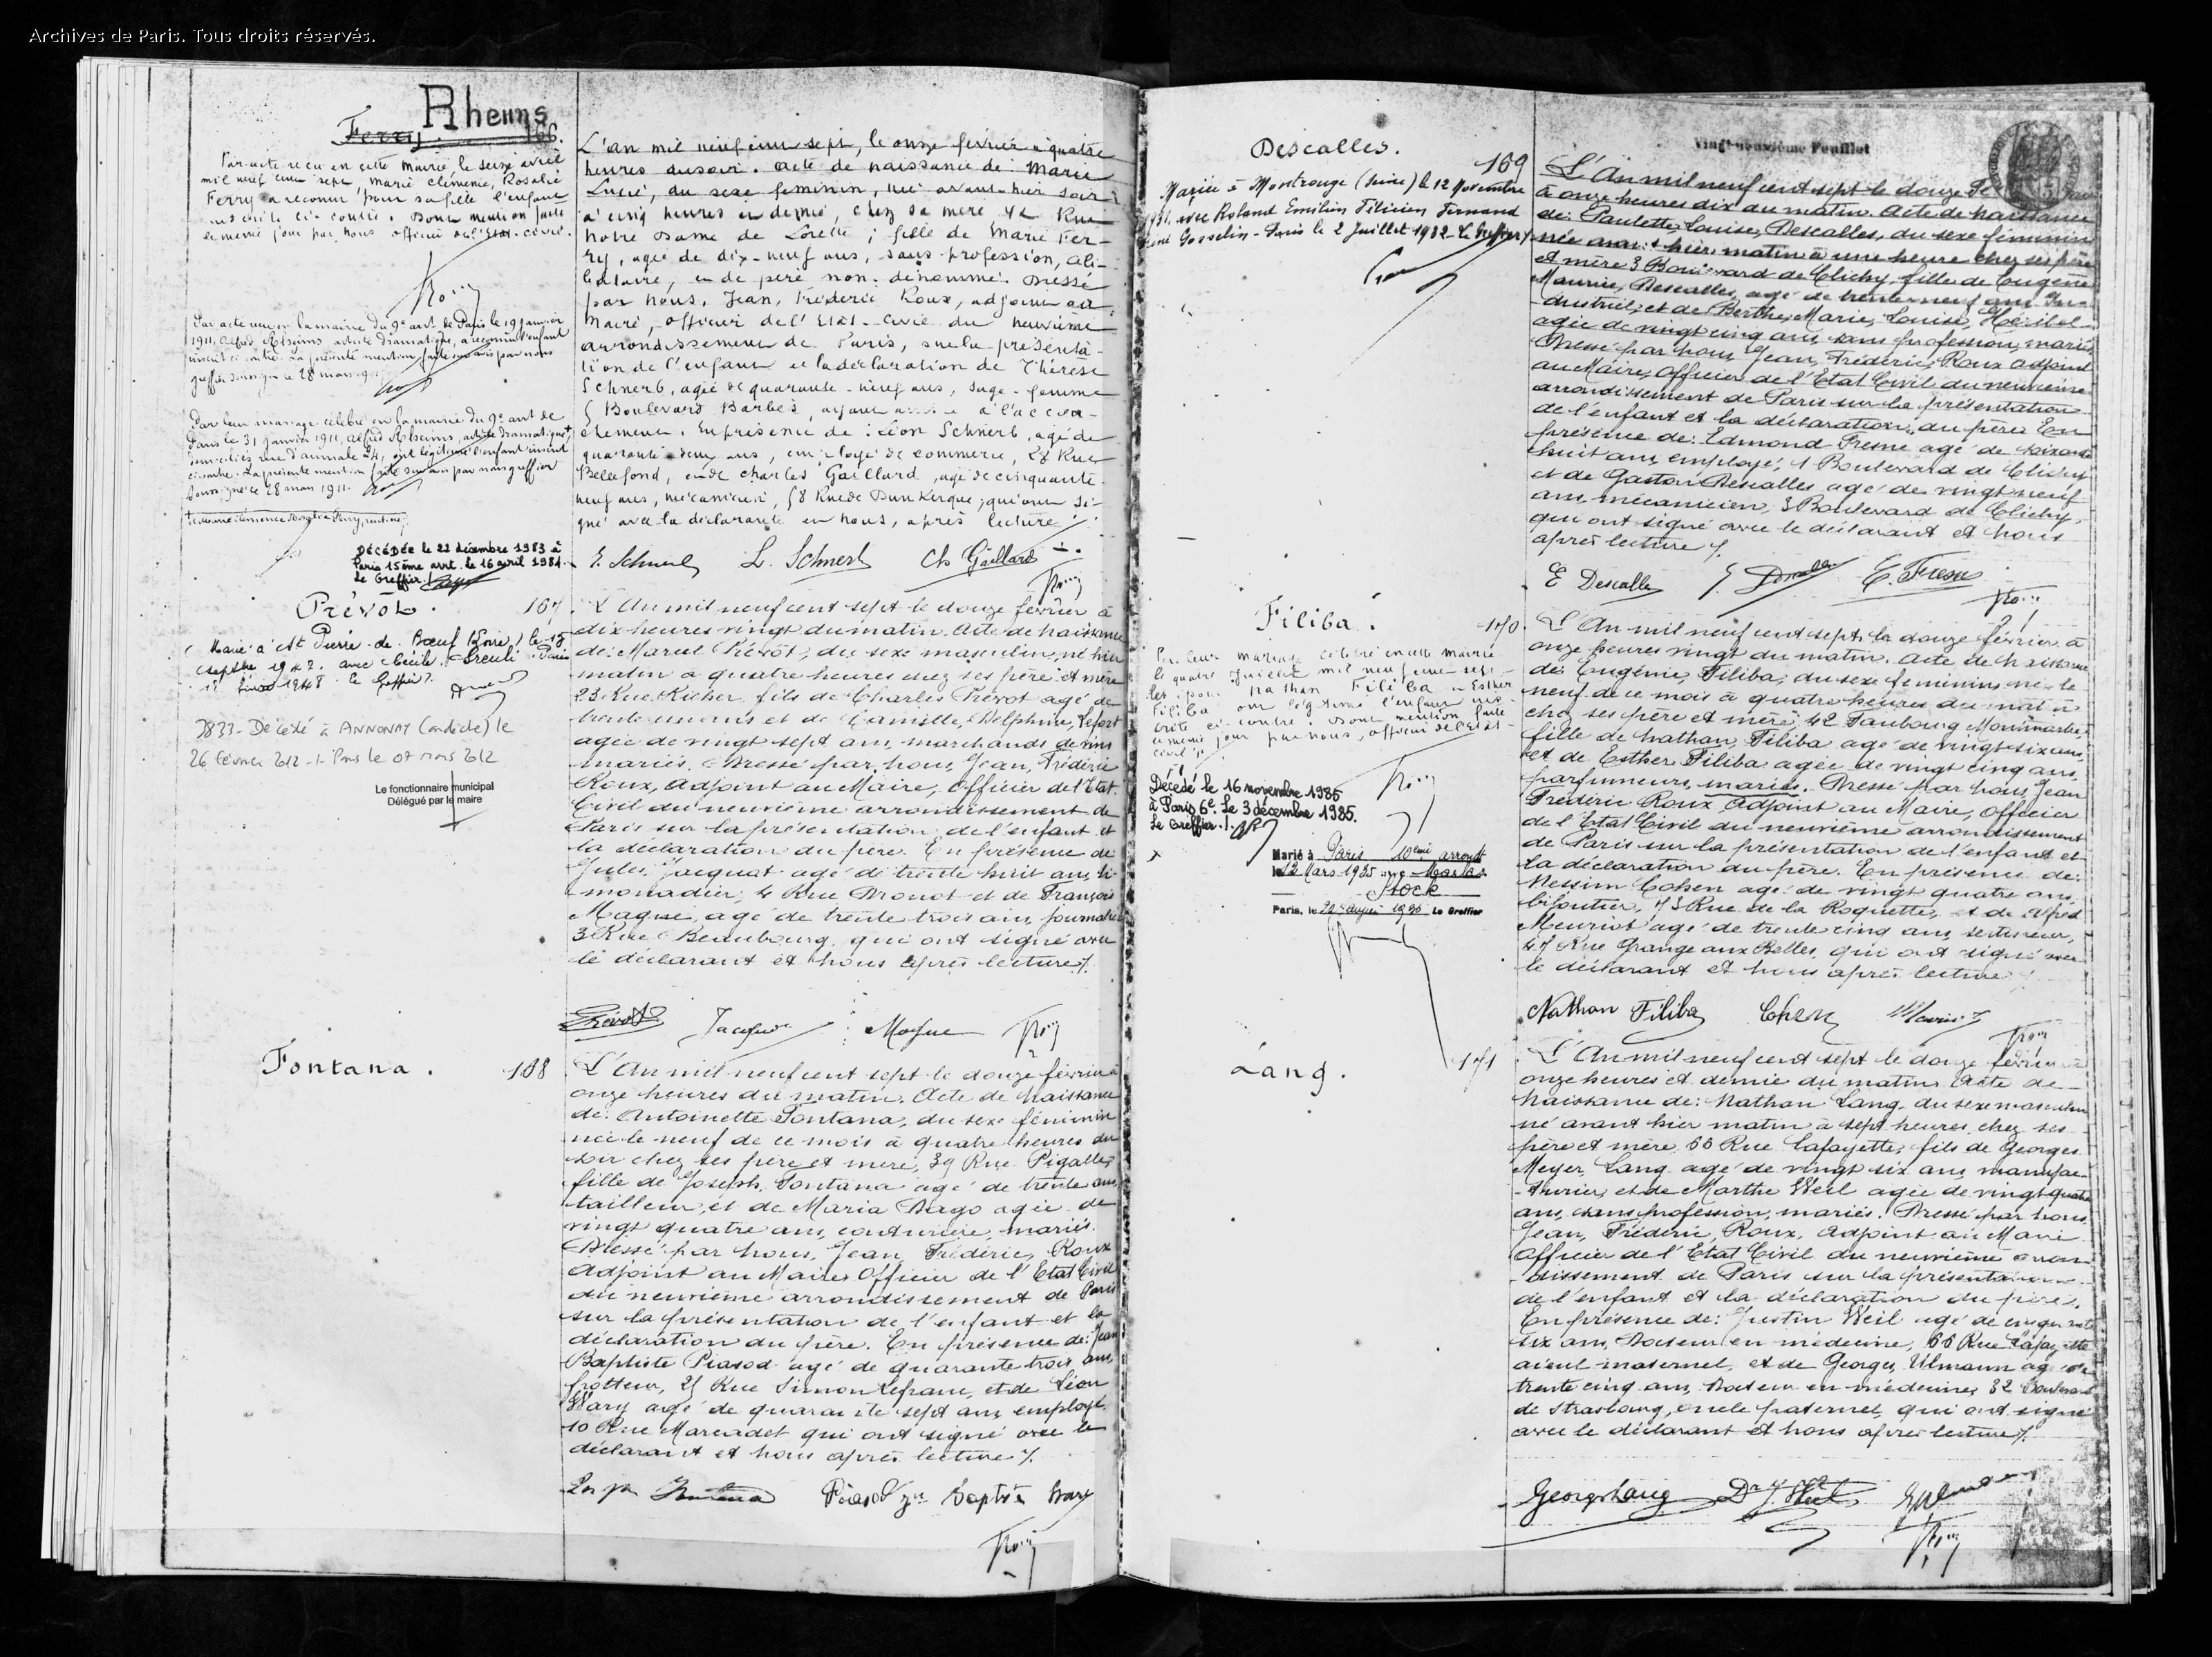 Archives de Paris. Tous droits réservés.
Rheims
Ferry
166.
Par acte reçu en cette mairie le seize avril
mil neuf cent sept, Marie Clémence, Rosalie
Ferry a reconnu pour sa fille l'enfant
inscrite ci-contre. Dont mention faite
le même jour par nous officier de l'Etat-civil.
Par acte reçu en la mairie du 9e arrt de Paris le 19 janvier
1911, Alfred Rheims artiste dramatique, a reconnu l'enfant
inscrit ci-contre. La présente mention faite par nous
greffier soussigné le 28 mars 1911
Par leur mariage célébré en la mairie du 9e arrt de
Paris le 31 janvier 1911, Alfred Rheims, artiste dramatique
domiciliés rue d'Aumale 24, ont légitimé l'enfant inscrit
ci-contre. La présente mention faite par nous greffier
soussigné le 28 mars 1911.
DÉCÉDÉE le 22 décembre 1983 à
Paris 15ème arrt. le 16 avril 1984.
Le Greffier.
L'an mil neuf cent sept, le onze février à quatre
heures du soir. Acte de naissance de Marie
Lucie, du sexe féminin, née avant-hier soir
à cinq heures et demie, chez sa mère 42 Rue
Notre Dame de Lorette ; fille de Marie Fer-
ry, agée de dix-neuf ans, sans profession, céli-
bataire, et de père non-dénommé. Dressé
par nous, Jean, Frédéric Roux, adjoint au
Maire, officier de l'Etat-Civil du neuvième
arrondissement de Paris, sur la présenta-
tion de l'enfant et la déclaration de Thérèse
Schnerb, agée de quarante-neuf ans, sage-femme
5 Boulevard Barbès, ayant assisté à l'accou-
chement. En présence de : Léon Schnerb, agé de
quarante deux ans, employé de commerce, 28 Rue
Bellefond, et de Charles Gaillard, agé de cinquante
neuf ans, mécanicien, 58 Rue de Dunkerque ; qui ont si-
gné avec la déclarante et nous, après lecture
L. Schnerb Ch Gaillard
Prévôt. 167
Marié à St Pierre-de-Bœuf (Loire) le 15
septbre 1942 avec Cécile Paris
1948 le Greffier
3833 - Décédé à ANNONAY (ardèche) le
26 février 2012 - Paris le 07 mars 2012
Le fonctionnaire municipal
Délégué par le maire
L'An mil neuf cent sept le douze février à
dix heures vingt du matin. Acte de naissance
de: Marcel Prévôt, du sexe masculin, né hier
matin à quatre heures chez ses père et mère
23 Rue Richer, fils de Charles Prévôt agé de
trente un ans et de Camille, Delphine, Lefort
agée de vingt sept ans, marchands de vins
mariés. Dressé par nous, Jean, Frédéric
Roux, adjoint au Maire, Officier de l'Etat
Civil du neuvième arrondissement de
Paris sur la présentation de l'enfant et
la déclaration du père. En présence de
Jules Jacquat agé de trente huit ans, li-
monadier, 4 Rue Drouot et de François
Magne, agé de trente trois ans, journalier
3 Rue Beaubourg qui ont signé avec
le déclarant et nous après lecture.
Prévôt Magne
Fontana. 168
L'An mil neuf cent sept le douze février à
onze heures du matin. Acte de naissance
de: Antoinette Fontana, du sexe féminin
née le neuf de ce mois à quatre heures du
soir chez ses père et mère, 39 Rue Pigalle,
fille de Joseph, Fontana agé de trente ans
tailleur, et de Maria Drago agée de
vingt quatre ans, couturière, mariés.
Dressé par nous, Jean, Frédéric, Roux
Adjoint au Maire, Officier de l'Etat Civil
du neuvième arrondissement de Paris
sur la présentation de l'enfant et la
déclaration du père. En présence de: Jean
Baptiste Piasod agé de quarante trois ans
frotteur, 25 Rue Simon Lefranc, et de Léon
Wary agé de quarante sept ans, employé
10 Rue Marcadet qui ont signé avec le
déclarant et nous après lecture.
Fontana Piasod Baptiste Wary
Descalles. 169
Mariée à Montrouge (Seine) le 12 Novembre
1931 avec Roland Emilien Félicien Fernand
René Gosselin - Paris le 2 Juillet 1932 - Le Greffier
Vingt-neuvième Feuillet
L'An mil neuf cent sept le douze
à onze heures dix du matin. Acte de naissance
de: Paulette, Louise, Descalles, du sexe féminin
née avant hier matin à une heure chez ses père
et mère 3 Boulevard de Clichy, fille de Eugène
Maurice, Descalles, agé de trente neuf ans, In-
dustriel, et de Berthe, Marie, Louise,
agée de vingt cinq ans, sans profession, mariés
Dressé par nous, Jean, Frédéric, Roux adjoint
au Maire, Officier de l'Etat Civil du neuvième
arrondissement de Paris sur la présentation
de l'enfant et la déclaration du père. En
présence de: Edmond Fresne agé de soixante
huit ans, employé, 1 Boulevard de Clichy
et de Gaston Descalles agé de vingt neuf
ans, mécanicien, 3 Boulevard de Clichy,
qui ont signé avec le déclarant et nous
après lecture.
E Descalles E. Fresne
Filiba. 170.
Par leur mariage célébré en cette mairie
le quatre Juillet mil neuf cent sept
les époux Nathan Filiba et Esther
Filiba ont légitimé l'enfant ins-
crite ci-contre. Dont mention faite
le même jour par nous, officier de l'Etat-
civil
Décédé le 16 novembre 1985
à Paris 6e. Le 3 décembre 1985.
Le Greffier.
Marié à Paris 10eme arrondt
le 12 Mars 1935 avec
Stock
Paris, le Le Greffier
L'An mil neuf cent sept, le douze février à
onze heures vingt du matin. Acte de naissance
de: Eugénie, Filiba, du sexe féminin, née le
neuf de ce mois à quatre heures du matin
chez ses père et mère, 42 Faubourg Montmartre,
fille de Nathan, Filiba agé de vingt six ans,
et de Esther Filiba agée de vingt cinq ans,
parfumeurs, mariés. Dressé par nous, Jean
Frédéric Roux Adjoint au Maire, Officier
de l'Etat Civil du neuvième arrondissement
de Paris sur la présentation de l'enfant et
la déclaration du père. En présence de:
Nessim Cohen agé de vingt quatre ans,
bijoutier, 73 Rue de la Roquette, et de Alfred
Meuriot agé de trente cinq ans,
47 Rue Grange aux Belles, qui ont signé avec
le déclarant et nous après lecture
Nathan Filiba Cohen
Lang. 171
L'An mil neuf cent sept le douze février à
onze heures et demie du matin. Acte de
naissance de: Nathan Lang, du sexe masculin
né avant hier matin à sept heures, chez ses
père et mère 66 Rue Lafayette, fils de Georges
Meyer Lang agé de vingt six ans, manufac-
turier, et de Marthe Weil agée de vingt quatre
ans, sans profession, mariés. Dressé par nous
Jean, Frédéric, Roux, Adjoint au Maire
Officier de l'Etat Civil du neuvième arron-
dissement de Paris sur la présentation
de l'enfant et la déclaration du père.
En présence de: Justin Weil agé de cinquante
six ans, Docteur en médecine, 66 Rue Lafayette
aïeul maternel, et de Georges Ulmann agé de
trente cinq ans, Docteur en médecine, 32 Boulevard
de Strasbourg, oncle paternel, qui ont signé
avec le déclarant et nous après lecture.
Georges Lang Dr J. Weil